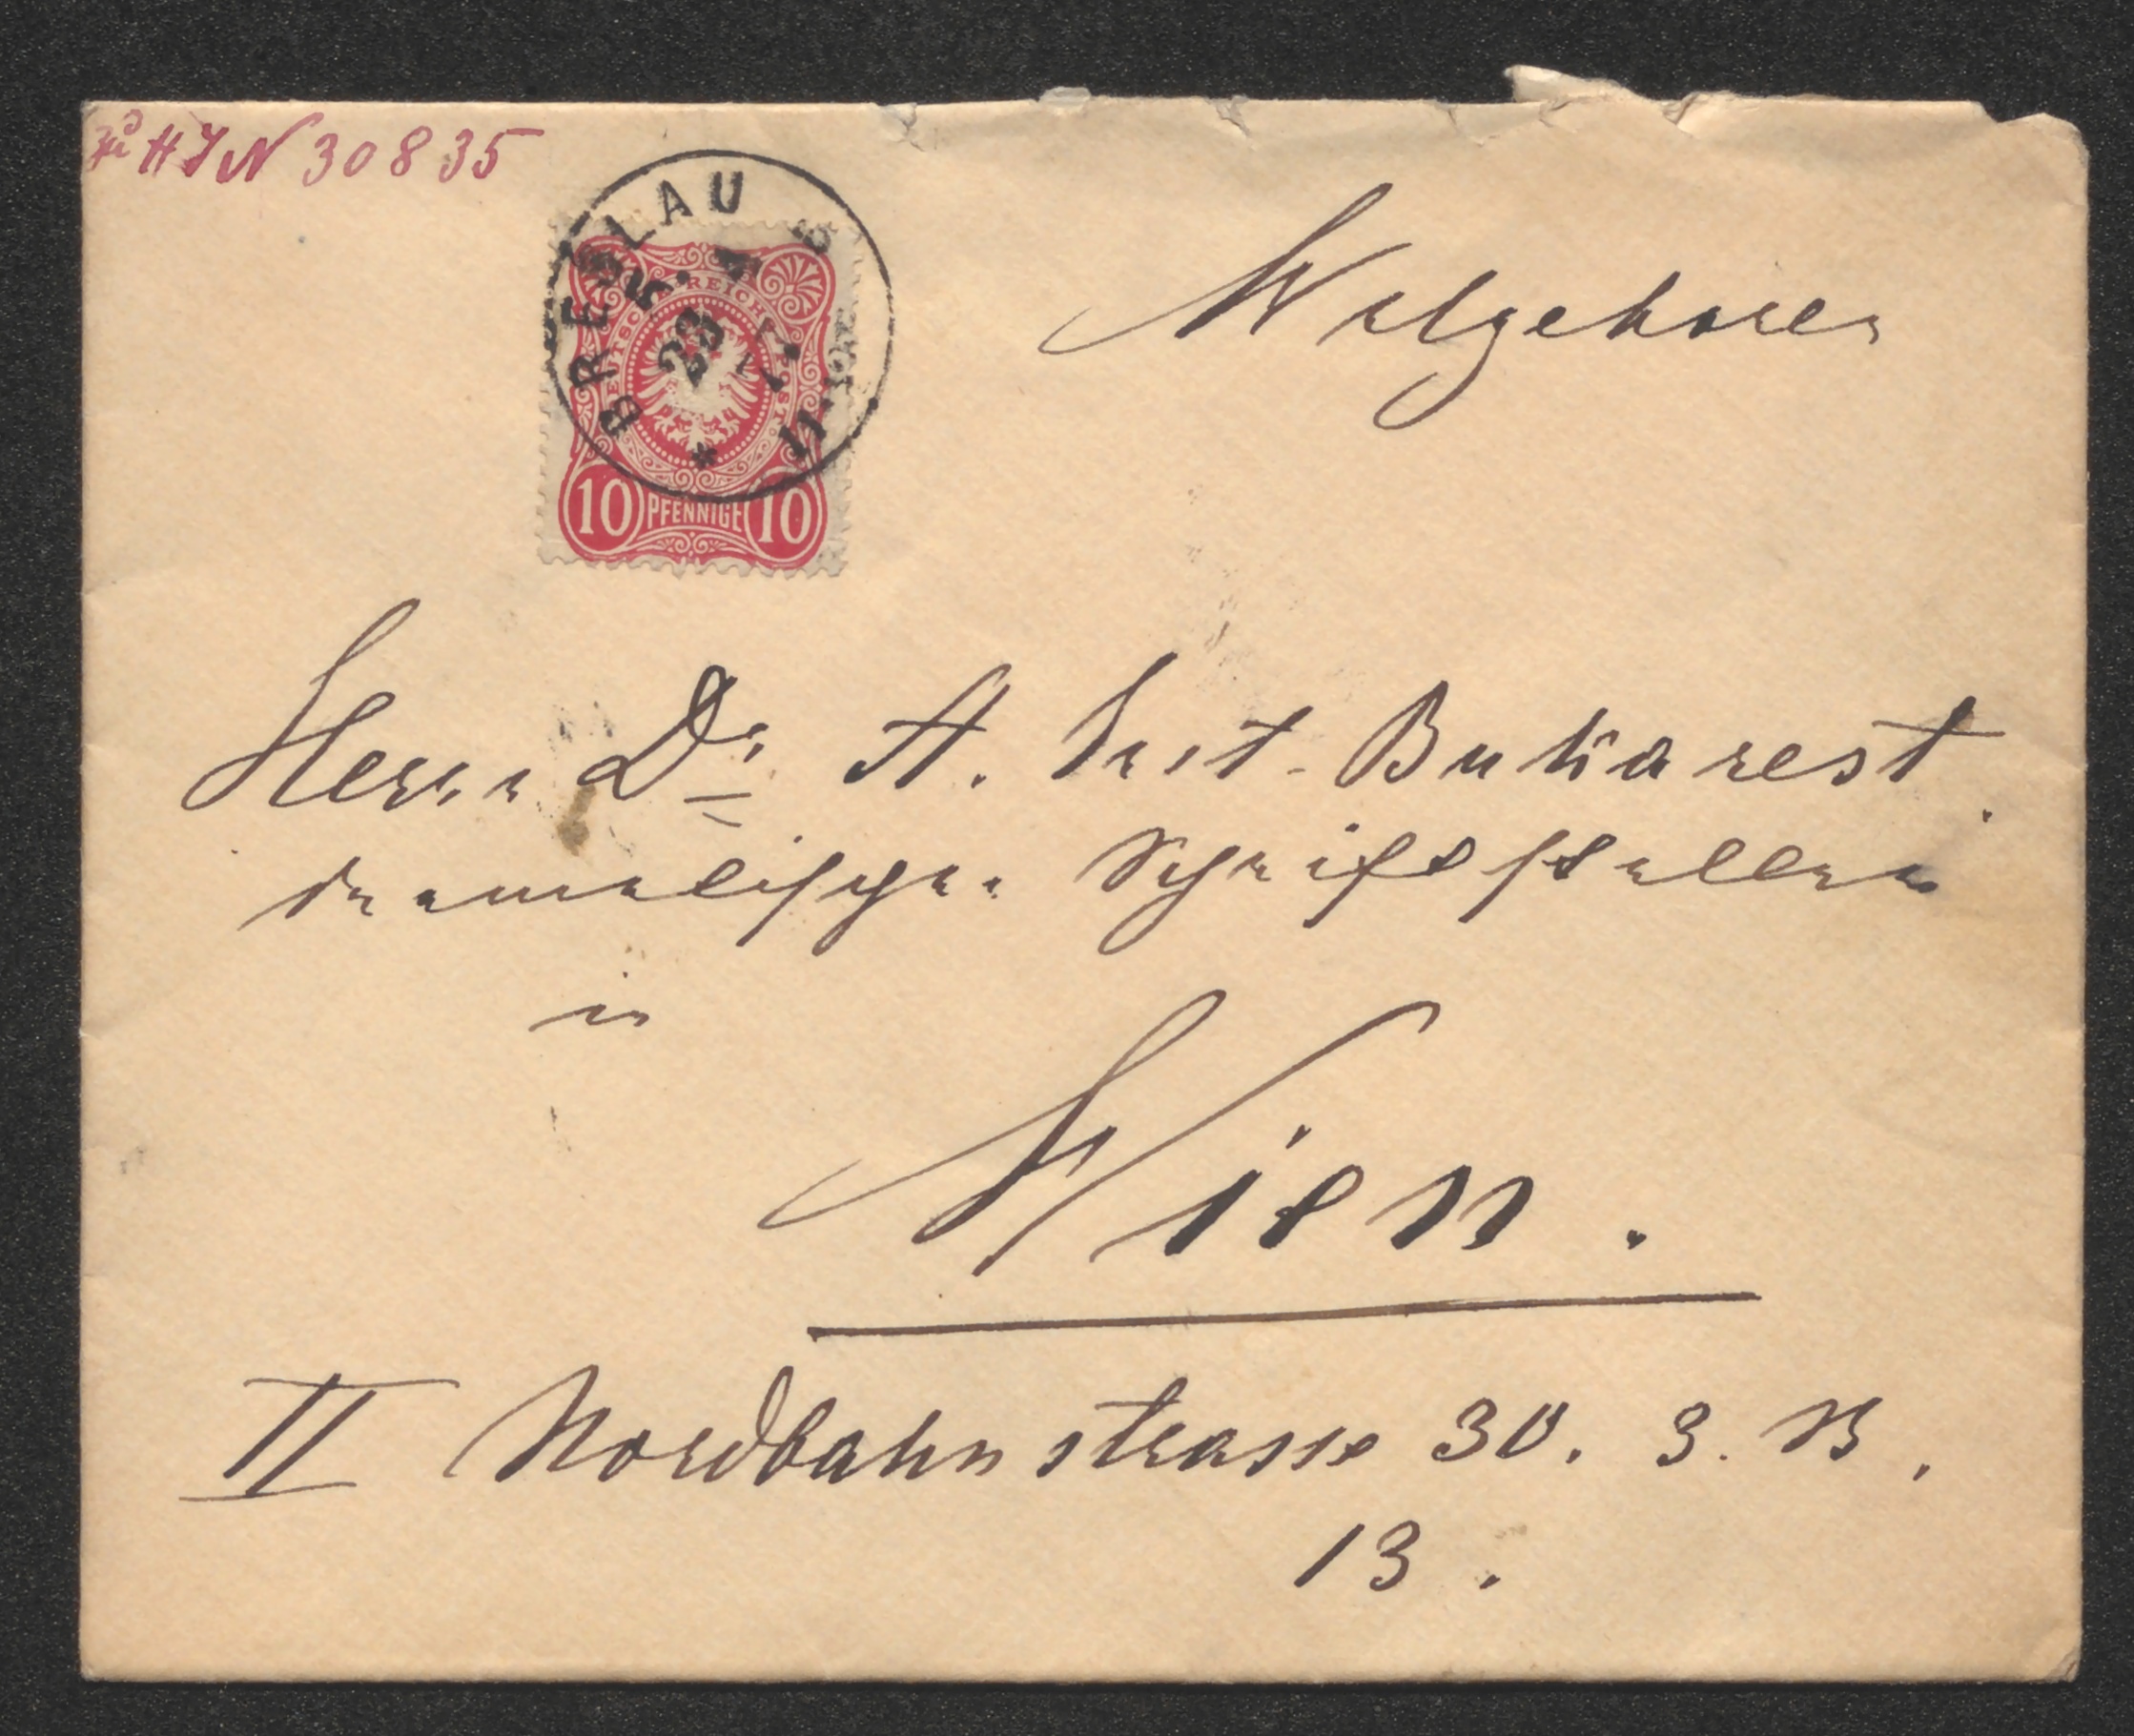 zu HIN 30835
BRESLAU
DEUTSCHE REICHS-POST
10 PFENNIGE 10
Wolgeboren
Herrn Dr A. Just-Bukarest.
dramatischer Schriftsteller
in
Wien.
II Nordbahnstrasse 30. 3. B.
13.